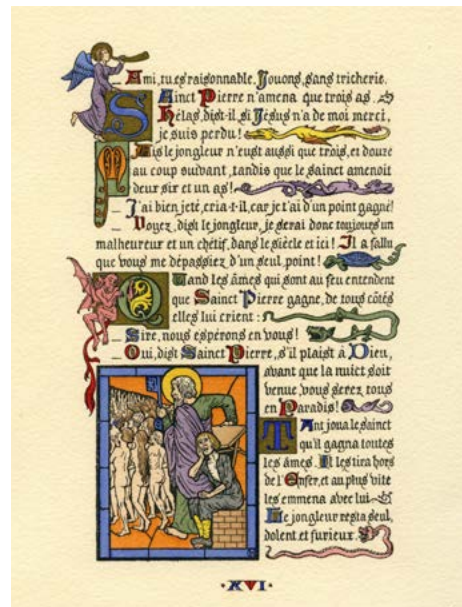 _ Ami, tu es raisonnable. Jouons, sans tricherie.
Sainct Pierre n'amena que trois as.
_ Hélas, dist-il, si Jésus n'a de moi merci,
je suis perdu!
Mais le jongleur n'eust aussi que trois, et douze
au coup suivant, tandis que le sainct amenoit
deux six et un as!
_ J'ai bien jeté, cria-t-il, car je t'ai d'un point gagné!
_ Voyez, dist le jongleur, je serai donc toujours un
malheureux et un chétif, dans le siècle et ici! Il a fallu
que vous me dépassiez d'un seul point!
Quand les âmes qui sont au feu entendent
que Sainct Pierre gagne, de tous côtés
elles lui crient:
_ Sire, nous espérons en vous!
_ Oui, dist Sainct Pierre, s'il plaist à Dieu,
avant que la nuict soit
venue, vous serez tous
en Paradis!
Tant joua le sainct
qu'il gagna toutes
les âmes. Il les tira hors
de l'Enfer, et au plus vite
les emmena avec lui
Le jongleur resta seul,
dolent et furieux.
·XVI·